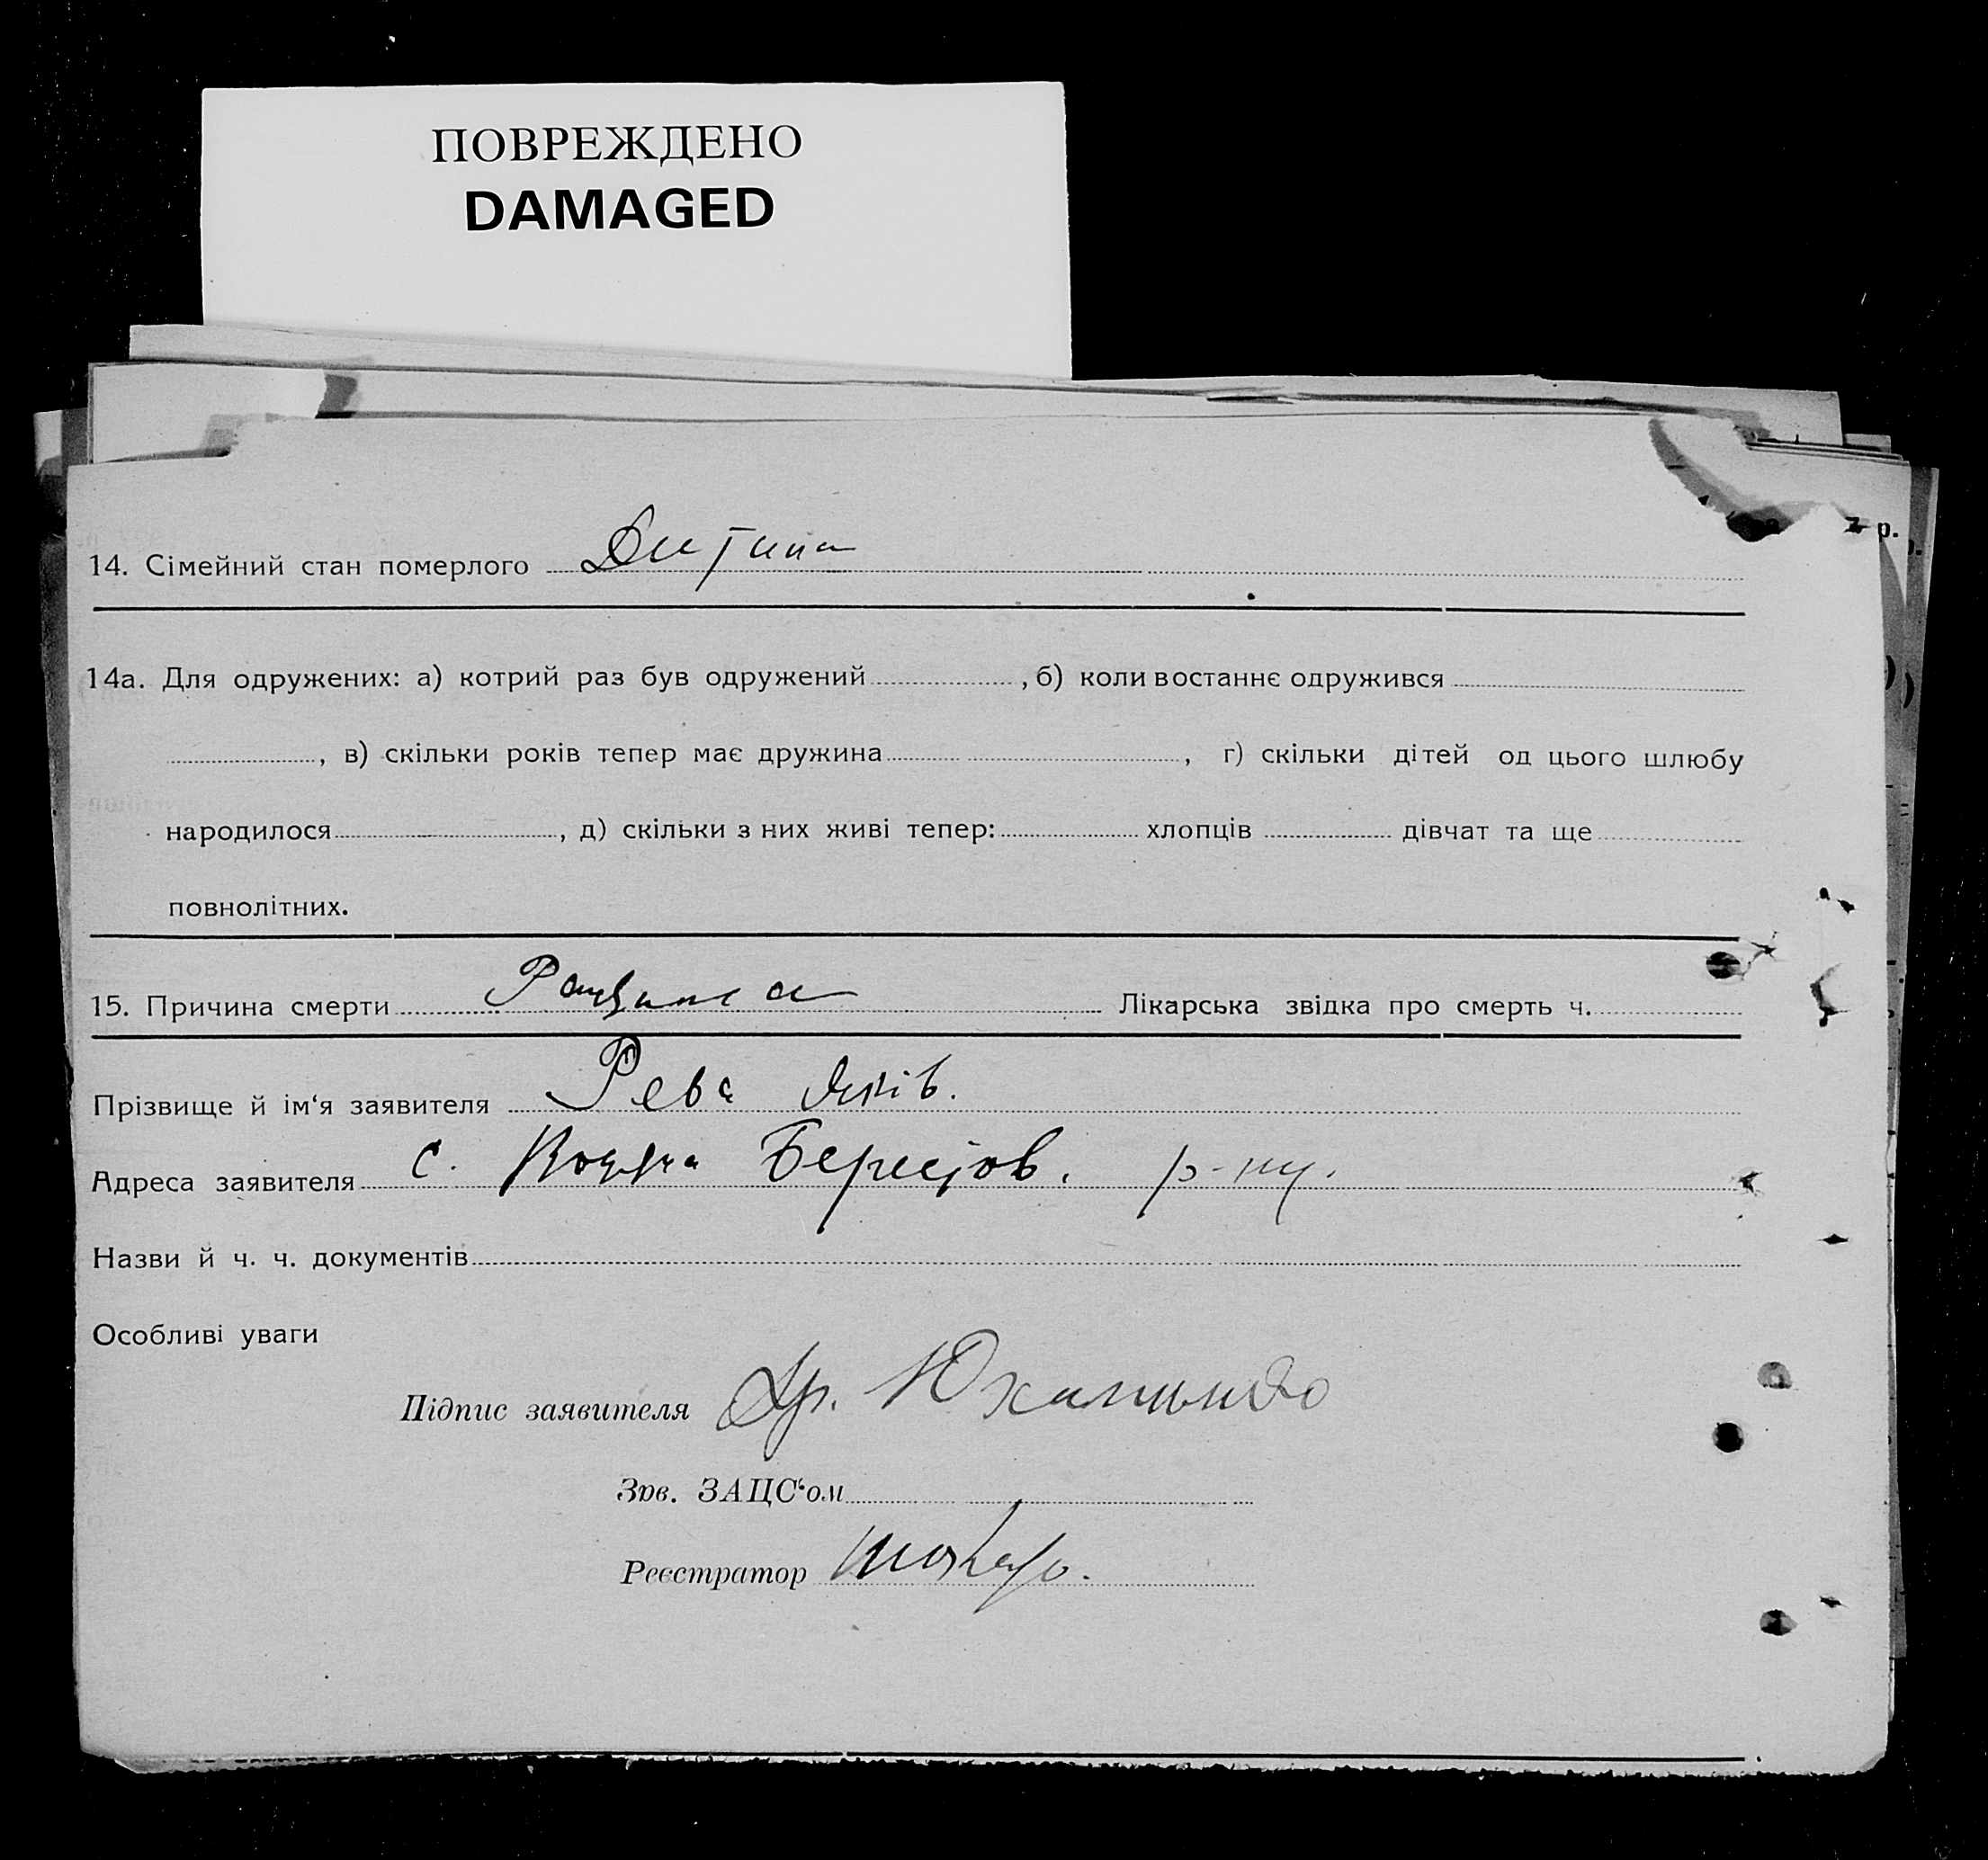 ПОВРЕЖДЕНО
DAMAGED
р.
14. Сімейний стан померлого Дитина
14а. Для одружених: а) котрий раз був одружений , б) коли востаннє одружився
, в) скільки років тепер має дружина , г) скільки дітей од цього шлюбу
народилося , д) скільки з них живі тепер: хлопців дівчат та ще
повнолітних.
15. Причина смерти Лікарська звідка про смерть ч.
Прізвище й ім‘я заявителя Рева Яків.
Адреса заявителя с. Берестов. р-ну.
Назви й ч. ч. документів
Особливі уваги
Підпис заявителя др.
Зав. ЗАЦС‘ом
Реєстратор